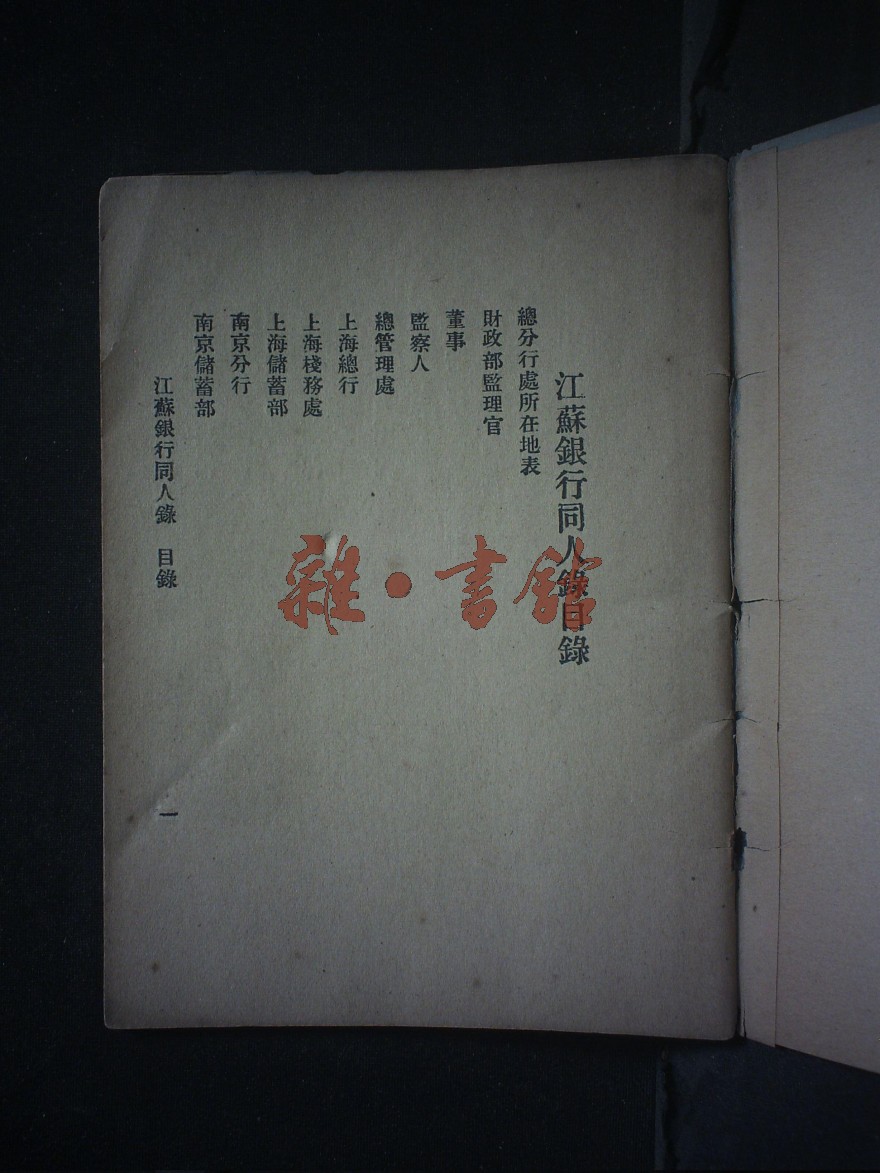 江蘇銀行同人錄目錄
總分行處所在地表
財政部監理官
董事
監察人
總管理處
上海總行
上海棧務處
上海儲蓄部
南京分行
南京儲蓄部
江蘇銀行同人錄 目錄
一
雜·書館